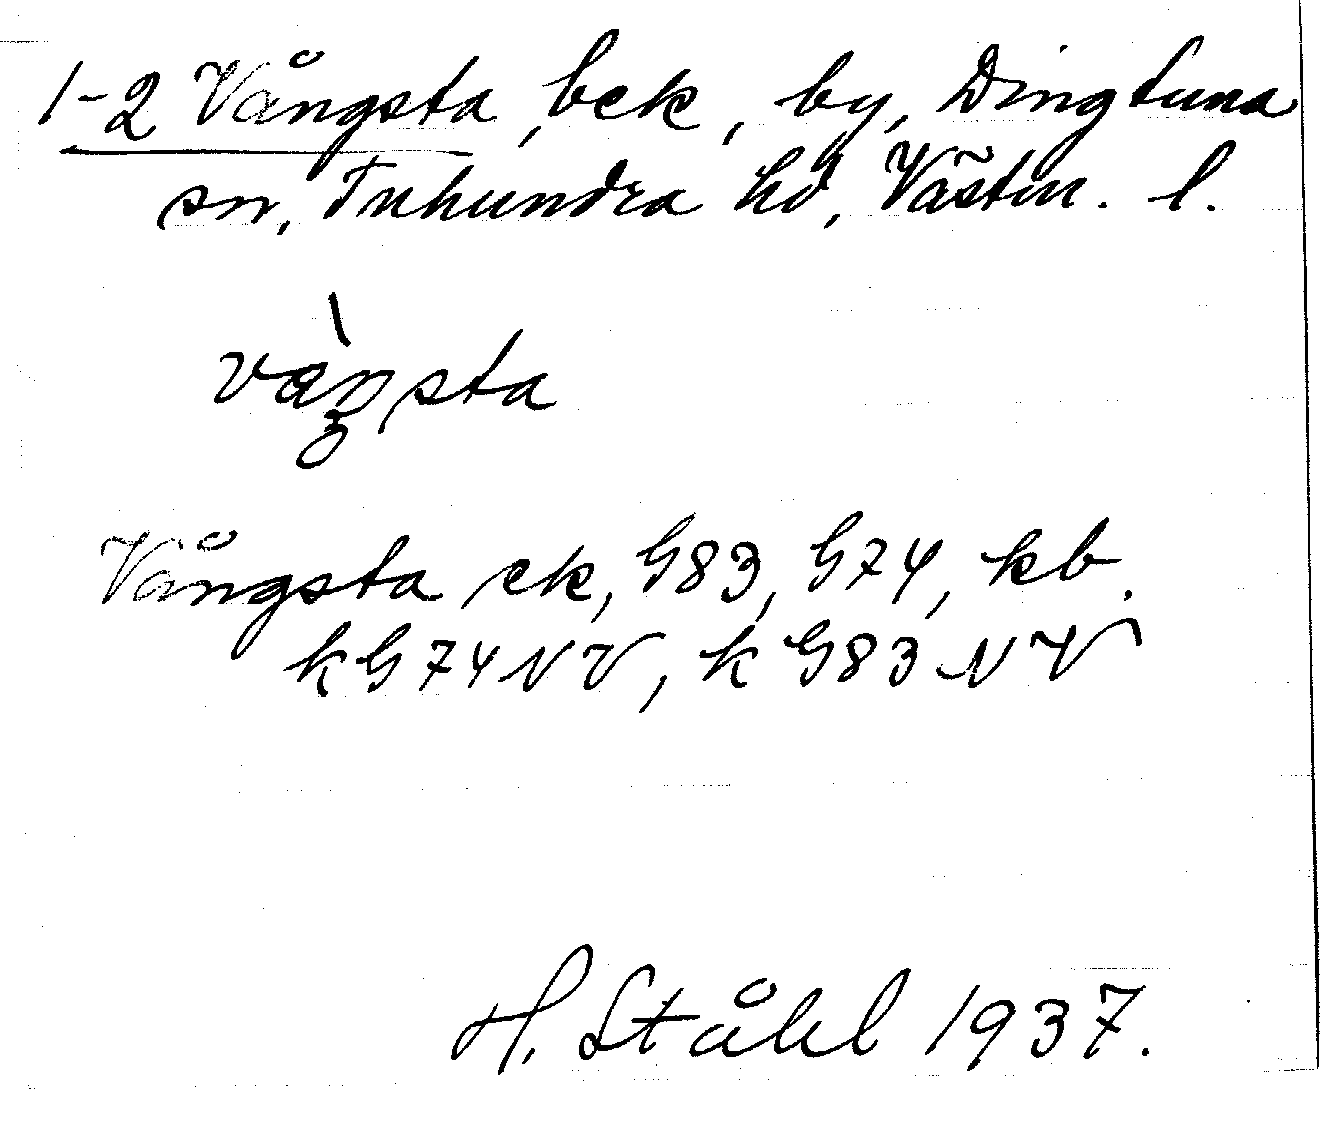 1-2 Vångsta, bek, by, Dingtuna
sn, Tuhundra hd, Västm. l.
vàŋsta
Vångsta ek, G83, G74, kb.
k G74NV, k G83 NV
H. Ståhl 1937.